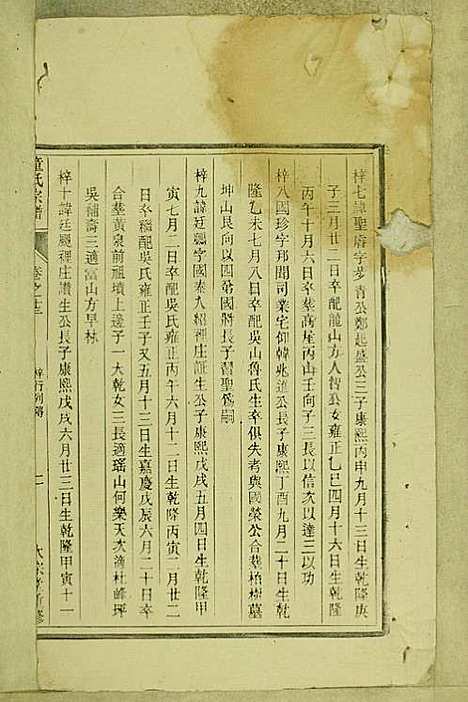 梓七諱聖睿字夢青公鄭起盛公三子康熙丙申九月十三日生乾隆庚
子三月廿二日卒配龍山方人智公女雍正乙巳四月十六日生乾隆
丙午十月六日卒葬萬屋丙山壬向子三長以信次以達三以功
梓八國珍字邦聞司業宅仰韓兆進公長子康熙丁酉九月二十日生乾
隆乙未七月八日卒配吳山魯氏生卒俱失考與國榮公合葬柏樹墓
坤山艮向以四弟國將長子習聖為嗣
梓九諱廷颺字國泰九紹裡庄証生公子康熙戊戌五月四日生乾隆甲
寅七月二日卒配吳氏雍正丙午六月十二日生乾隆丙寅二月廿二
日卒繼配吳氏雍正壬子又五月十三日生嘉慶戊辰六月二十日卒
合葬黃泉前祖墳上邊子一大乾女三長適瑤山何樂天次適杜峰坪
吳補齋三適富山方早林
梓十諱廷颺裡庄讚生公長子康熙戊戌六月廿三日生乾隆甲寅十一
童氏宗譜
卷之廿三
梓行列傳